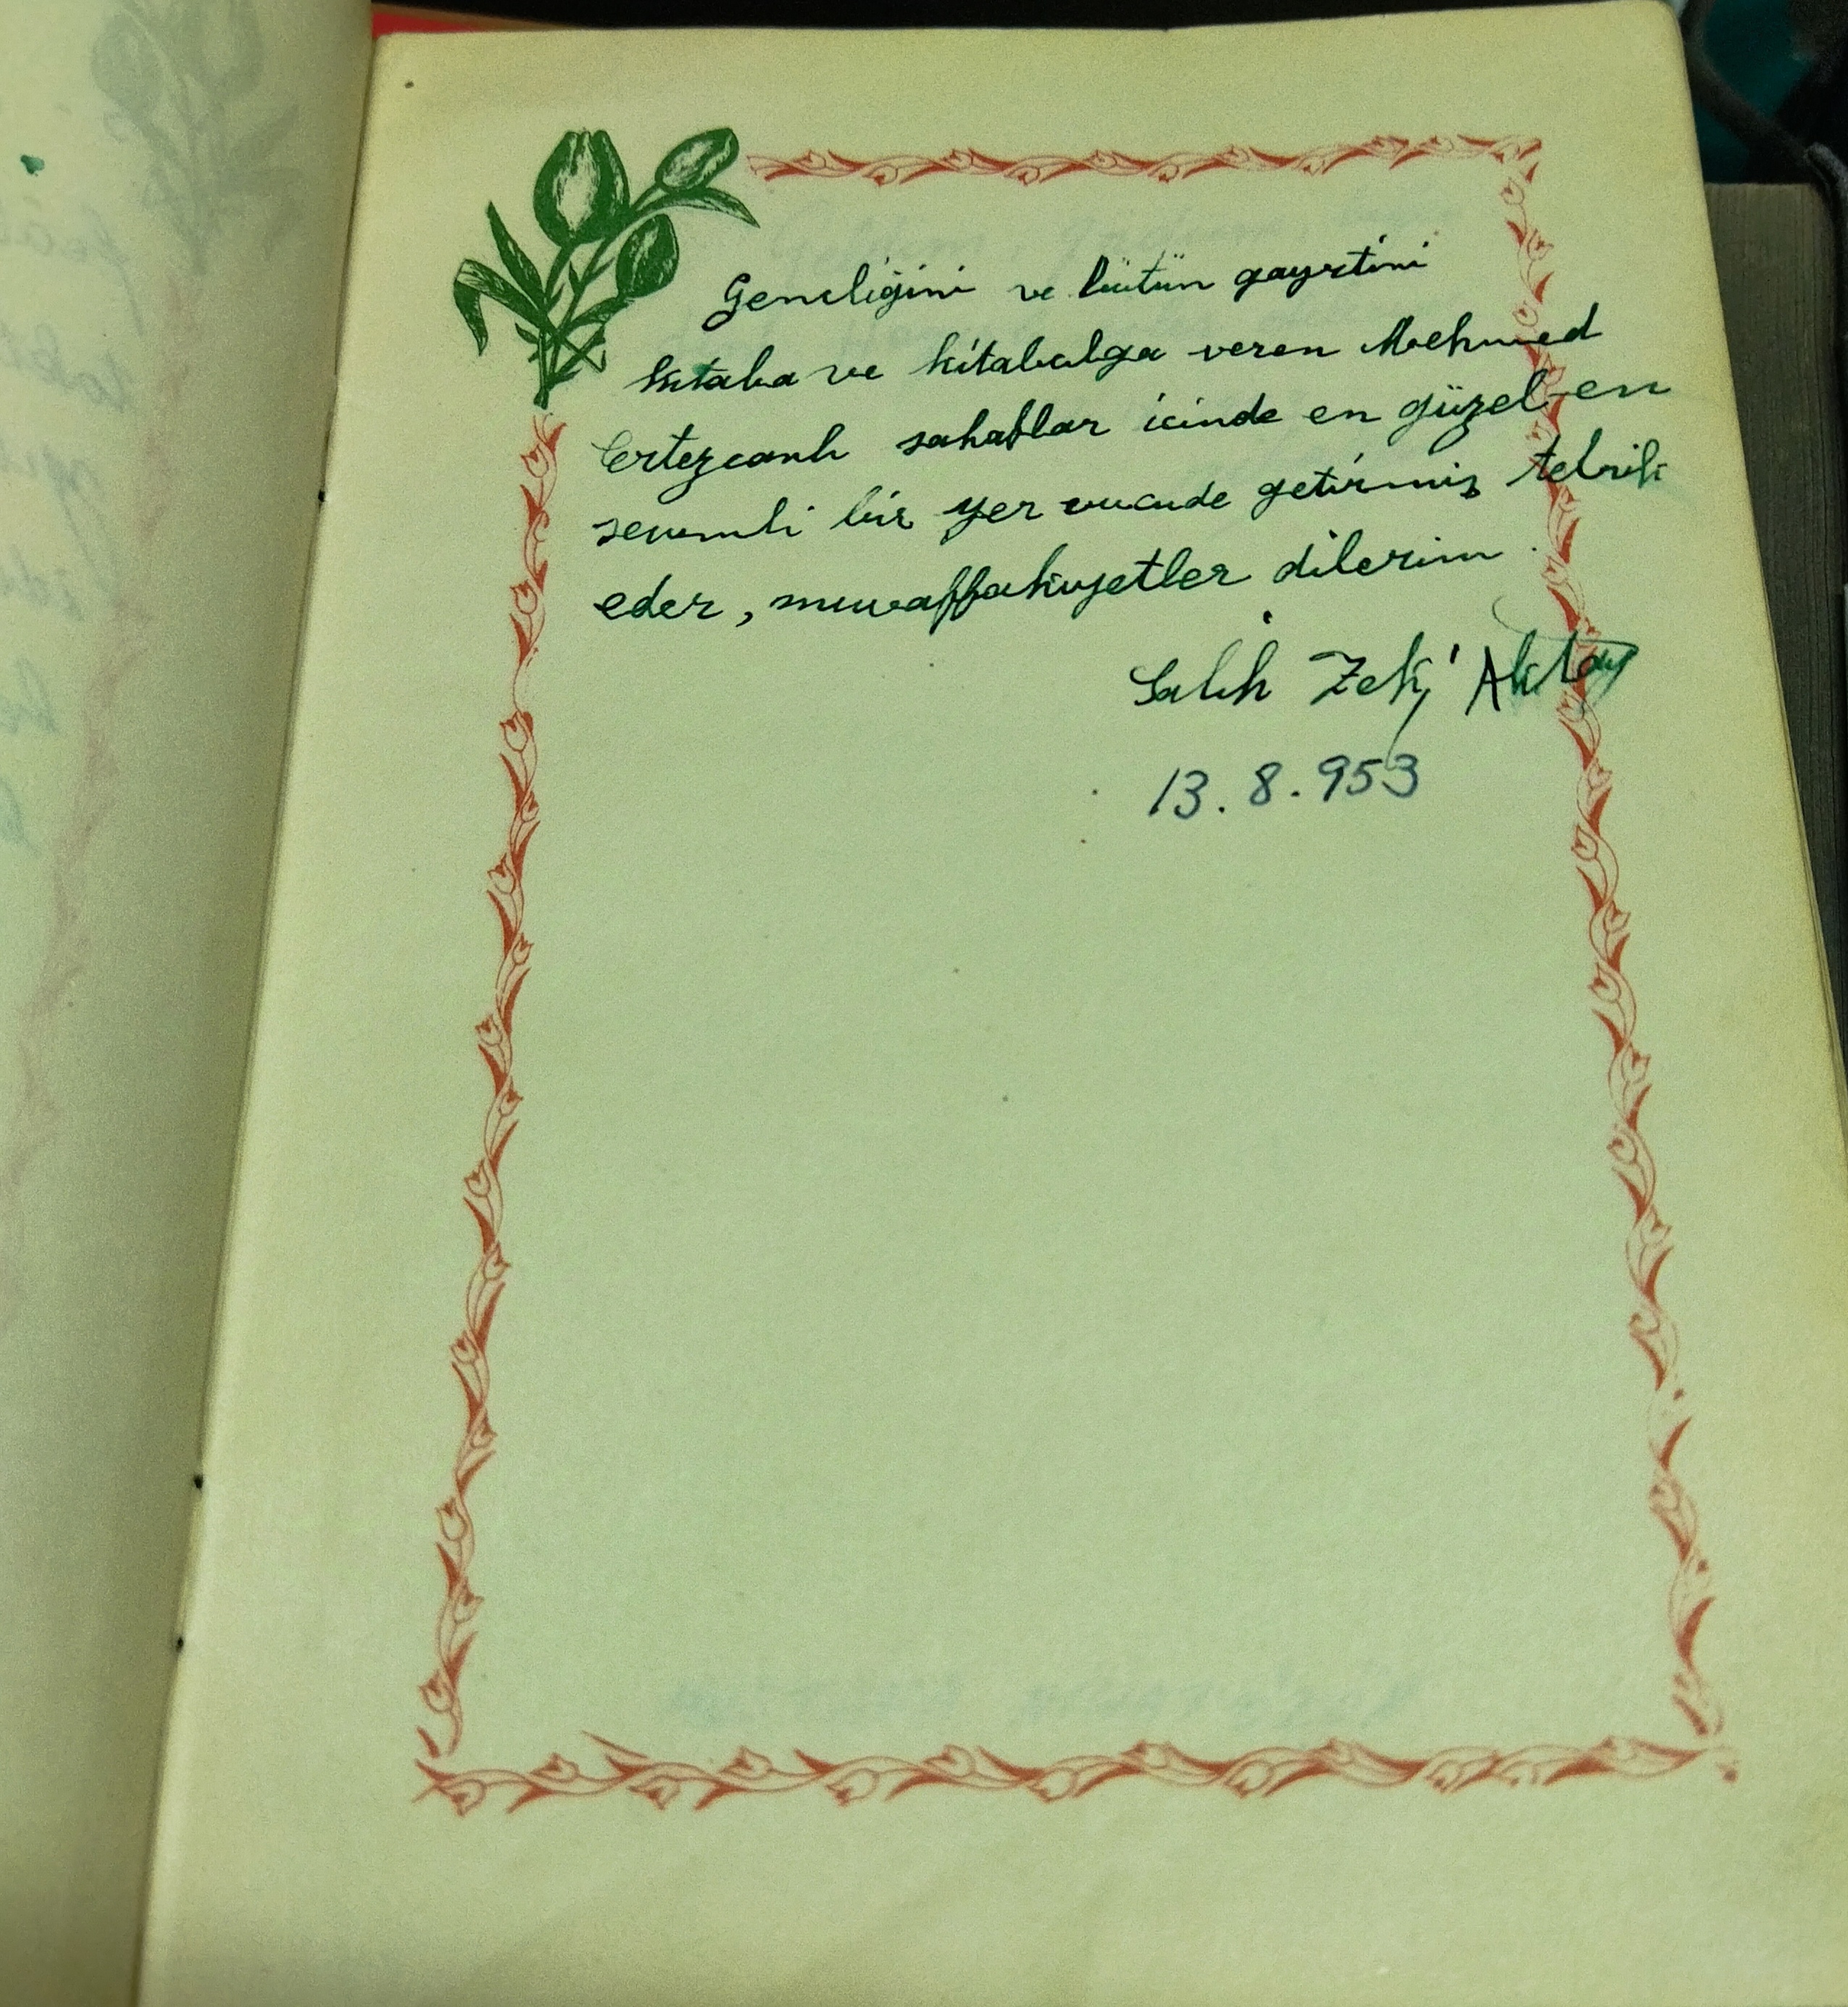 Gençliğini ve bütün gayretini
kitaba ve kitabcılığa veren Mehmed
sahaflar içinde en güzel en
sevimli bir yer vucude getirmiş tebrik
eder, muvaffakiyetler dilerim.
Salih Zeki Aktay
13.8.953